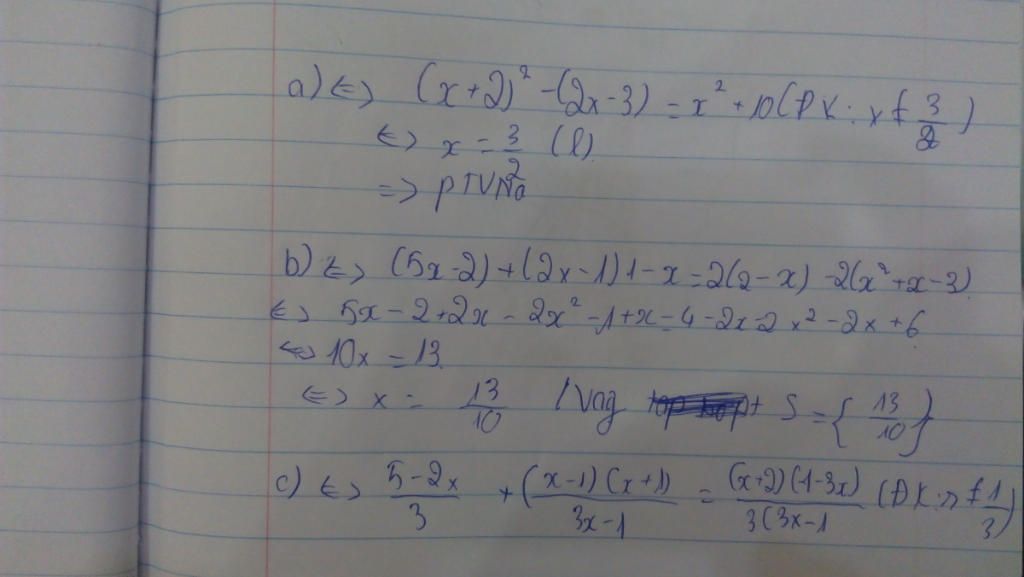 a) <=> (x+2)² - (2x-3) = x² + 10 (ĐK: x ≠ 3/2)
<=> x = 3/2 (l)
=> PTVNo
b) <=> (5x-2)+(2x-1)1-x = 2(2-x) -2(x²+x-3)
<=> 5x-2+2x-2x²-1+x=4-2x-2x²-2x+6
<=> 10x = 13
<=> x = 13/10 /Vag S = {13/10}
c) <=> 5-2x/3 + (x-1)(x+1)/3x-1 = (x+2)(1-3x)/3(3x-1 (ĐK: x ≠ 1/3)